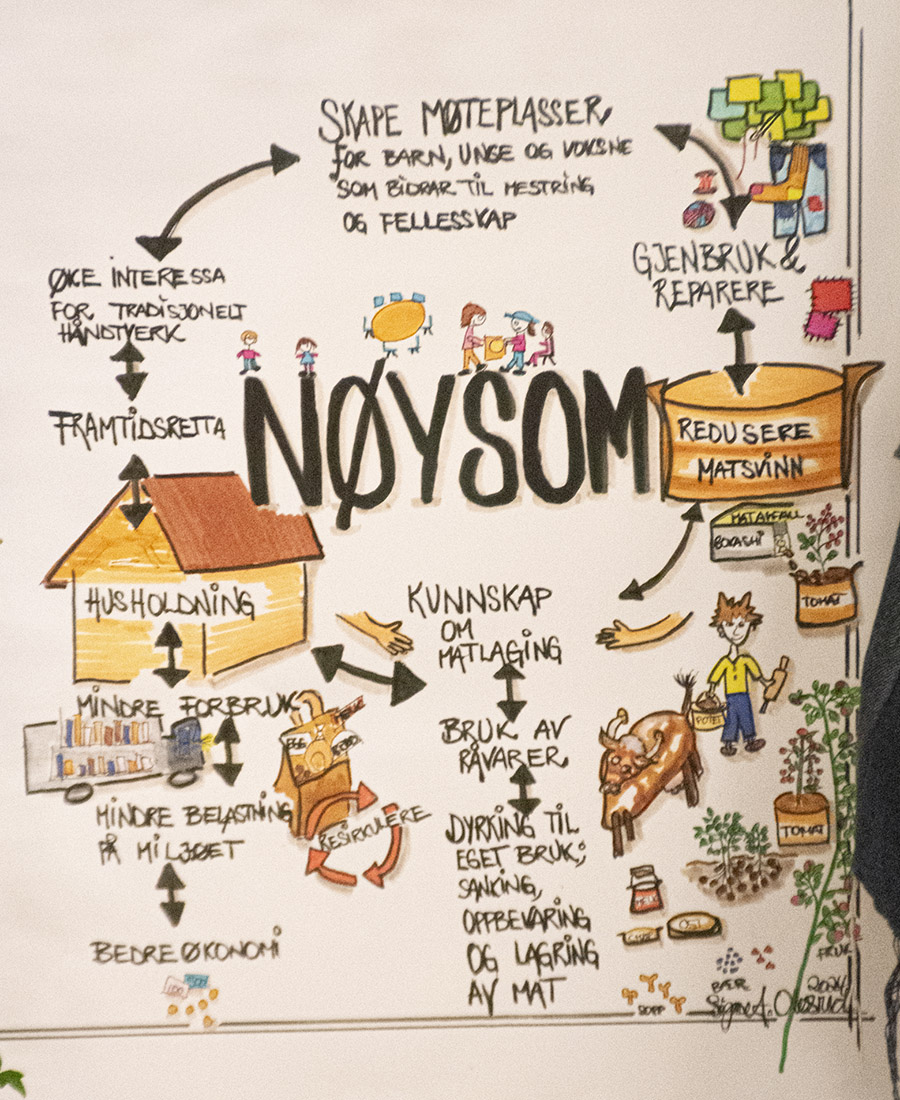 SKAPE MØTEPLASSER,
FOR BARN, UNGE OG VOKSNE
SOM BIDRAR TIL MESTRING
OG FELLESSKAP
ØKE INTERESSA
FOR TRADISJONELT
HÅNDTVERK
FRAMTIDSRETTA
NØYSOM
GJENBRUK &
REPARERE
REDUSERE
MATSVINN
MATAVFALL
BOKASHI
TOMAT
HUSHOLDNING
MINDRE FORBRUK
MINDRE BELASTNING
PÅ MILJØET
BEDRE ØKONOMI
100
EGG
RESIRKULERE
KUNNSKAP
OM
MATLAGING
BRUK AV
RÅVARER,
DYRKING TIL
EGET BRUK;
SANKING,
OPPBEVARING
OG LAGRING
AV MAT
POTET
TOMAT
OST
FRUKT
BÆR
SOPP
2024
Signe A.